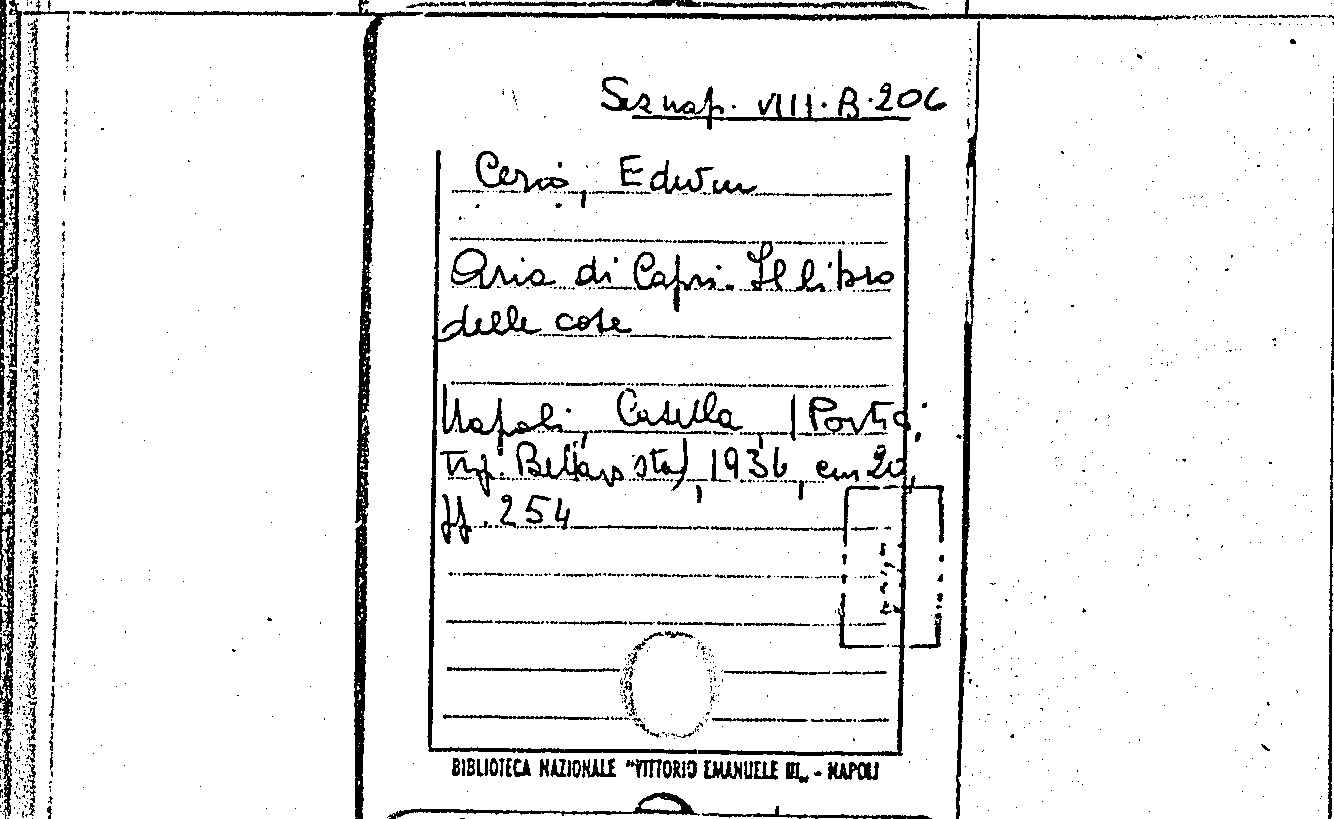 Sez nap. VIII. B. 206
Cerio, Edwin
Aria di Capri. Il libro
delle cose
Napoli, Casella, (Portici,
Tip. Bellavista), 1936, cm 20,
pp. 254
BIBLIOTECA NAZIONALE "VITTORIO EMANUELE III„ - NAPOLI